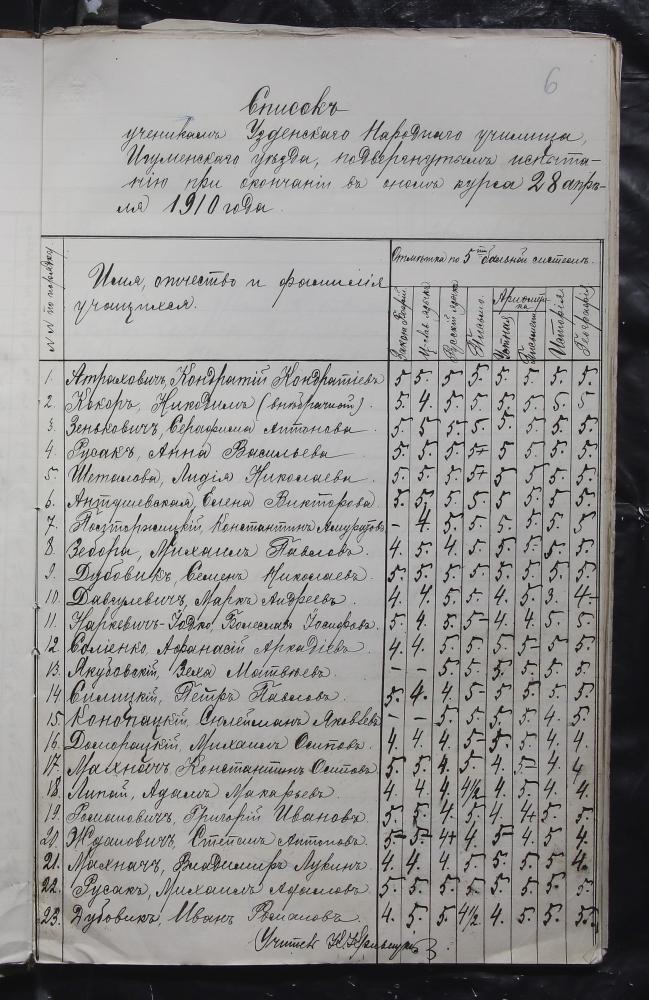 6
Списокъ
ученикамъ Узденскаго Народнаго училища,
Игуменскаго уѣзда, подвергнутымъ испыта-
нію при окончаніи въ ономъ курса 28 апрѣ-
ля 1910 года.
NN по порядку
Имя, отчество и фамилія
учащихся.
Отмѣтка по 5ти бальной системѣ.
Законъ Божій
Ц-слав. языкъ
Русскій языкъ
Письмо.
Ариѳмети-
ка
Устная
Письмен.
Исторія
Географія
1. Атраховичъ, Кондратій Кондратіевъ 5. 5. 5. 5. 5. 5. 5. 5.
2. Кокоръ, Никодимъ (внѣбрачный). 5. 4. 5. 5. 5. 5. 5. 5
3. Зеньковичъ, Серафима Антонова 5. 5. 5. 5. 5. 5. 5. 5.
4. Русакъ, Анна Васильева 5. 5. 5. 5+ 5 5. 5. 5.
5. Шеталова, Лидія Николаева 5. 5. 5. 5+ 5. 5. 5. 5.
6. Елена Викторова 5. 5. 5. 5. 5. 5. 5. 5.
7. Константинъ – 4. 5. 5. 5. 5. 5. 5.
8. Зедора, Михаилъ Павловъ. 4. 5. 4. 5. 5. 5. 5. 5.
9. Дубовикъ, Семенъ Николаевъ. 5. 5. 5. 5. 5. 5. 5. 5.
10. Давгулевичъ, Маркъ Андреевъ. 4. 4. 5. 5. 4. 5. 3. 4–
11. Наркевичъ-Іодко, Болеславъ Іосифовъ. 5. 4. 5. 5– 4. 4. 5. 5.
12. Соліенко, Афанасій Аркадіевъ 4. 4. 5. 5. 5. 5– 5. 5.
13. Якубовскій, Зеха Матвѣевъ. – – 5. 5. 5. 5. 5. 5.
14 Силицкій, Петръ Павловъ. 5. 4. 4. 5– 5. 5. 5. 5.
15. Конопацкій, Сюлейманъ Яковлевъ – – 5. 5. 5. 5. 4. 5.
16. Доморацкій, Михаилъ Осиповъ. 4. 4. 4. 5– 5. 5. 4. 4.
17. Махначъ, Константинъ Осиповъ. 5. 5. 4. 5. 4. 5– 4. 4
18. Липай, Адамъ Макарьевъ. 4. 4. 4. 4½ 4. 5. 4. 4.
19. Романовичъ, Григорій Ивановъ 5. 5. 4. 5. 4. 4+ 5. 5.
20. Ждановичъ, Степанъ Антоновъ 5– 5– 4+ 4. 5 4. 5 4.
21. Махначъ, Владимиръ Лукинъ 4. 4. 4. 5. 5. 5. 5. 4.
22. Русакъ, Михаилъ Адамовъ 5. 5. 5. 5. 5. 5. 5. 5.
23. Дубовикъ, Иванъ Романовъ. 4. 5. 5. 4½ 4. 5. 5. 5.
Учитель